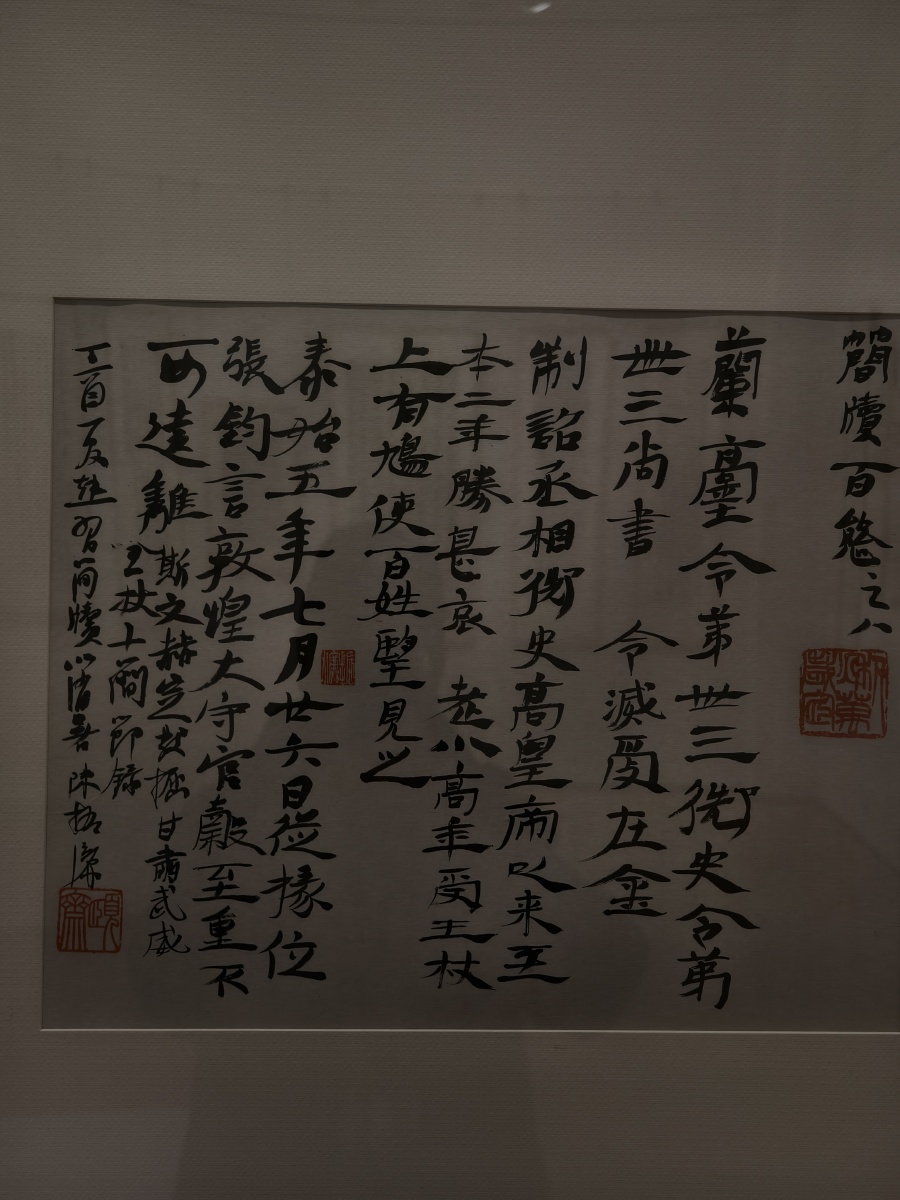 簡牘百態之八
蘭臺令第卅三御史令第
卅三尚書 令滅受在金
制詔丞相御史高皇帝以来至
本二年勝甚哀 老小高年受王杖
上有鳩使百姓望見之
泰始五年七月廿六日從掾位
張鈞言敦煌大守官穀至重不
可遠離
斯文赫定發掘甘肅武威
王杖十簡節錄
丁酉夏 習簡牘 陳